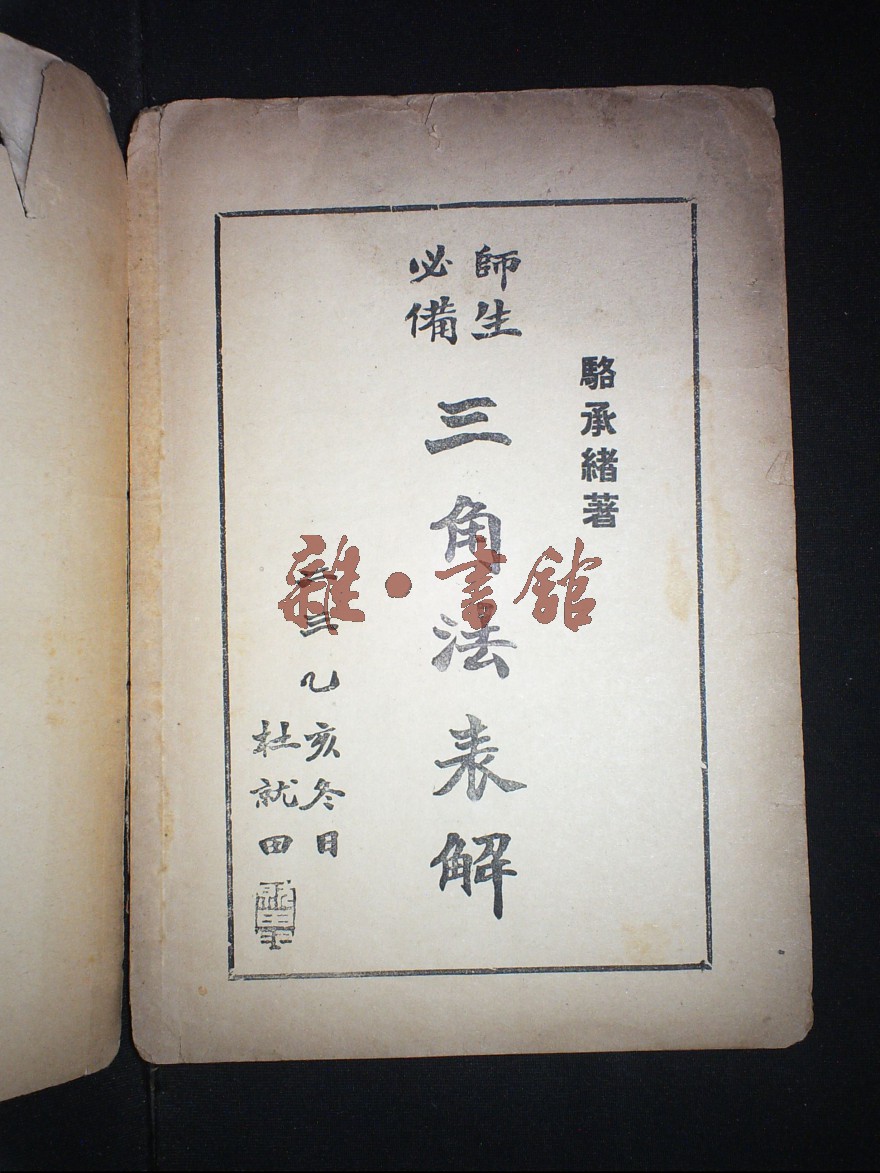 駱承緒著
師生
必備
三角法表解
乙亥冬日
杜就田
雜·書館